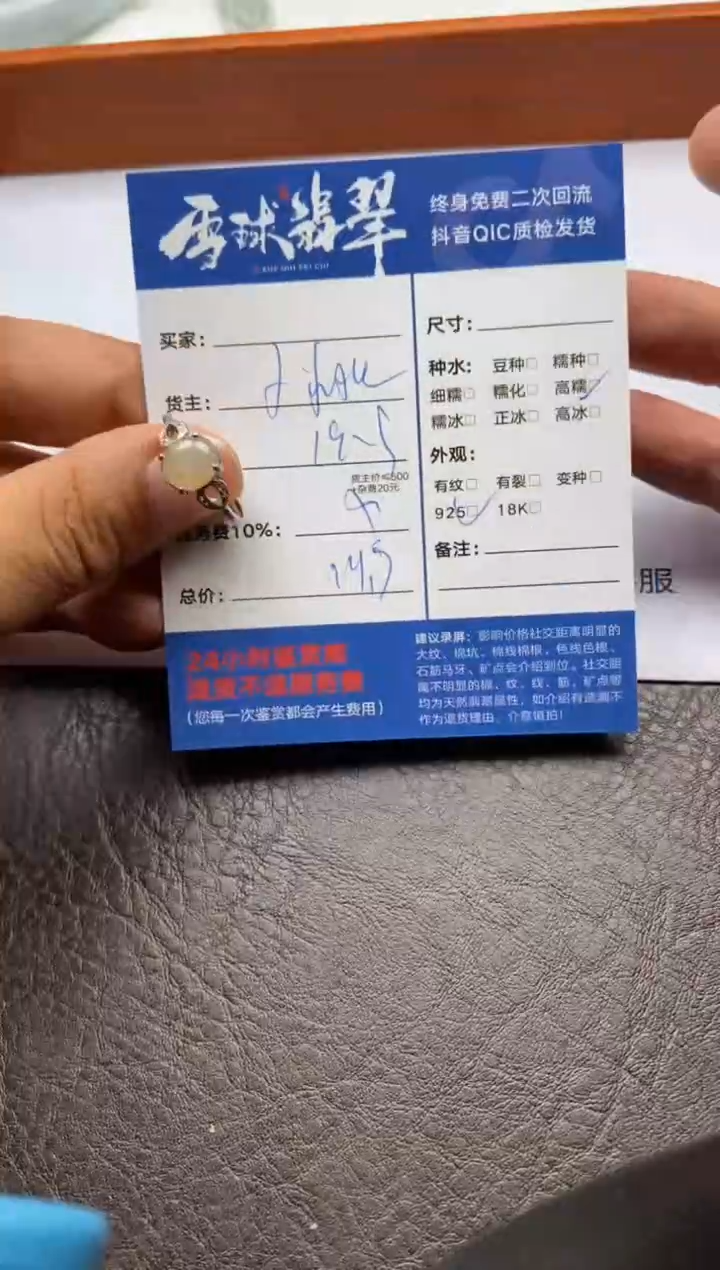 雪球翡翠
XUE QIU FEI CUI
终身免费二次回流
抖音QIC质检发货
买家：
货主：
货主价≤500
+杂费20元
费10%：
总价：
尺寸：
种水： 豆种□ 糯种□
细糯□ 糯化□ 高糯□
糯冰□ 正冰□ 高冰□
外观：
有纹□ 有裂□ 变种□
925□ 18K□
备注：
24小时
（您每一次鉴赏都会产生费用）
建议录屏：影响价格社交距离明显的
大纹、棉坑、棉线棉根、色线色根、
石筋马牙、矿点会介绍到位。社交距
离不明显的棉、纹、线、筋、矿点等
均为天然翡翠属性，如介绍有遗漏不
作为退货理由，介意慎拍！
服